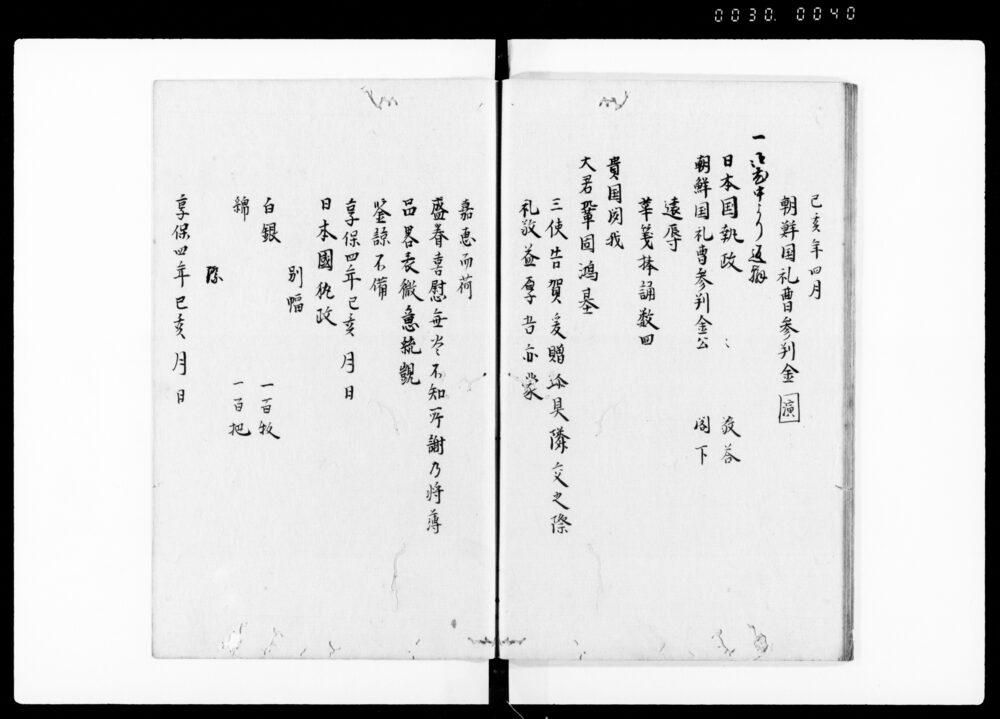 0030. 0040
己亥年四月
朝鮮国礼曹参判金 演
一 御老中より返翰
日本国執政 敬答
朝鮮国礼曹参判金公 閤下
遠辱
華箋捧誦数回
貴国因我
大君鞏固鴻基
三使告賀爰贈 具隣交之際
礼敬益厚吾亦蒙
嘉恵而荷
盛眷喜慰無 不知所謝乃将薄
品畧表微 統
鑒諒不備
享保四年己亥 月 日
日本國執政
別幅
白銀 一百枚
綿 一百把
際
享保四年己亥 月 日